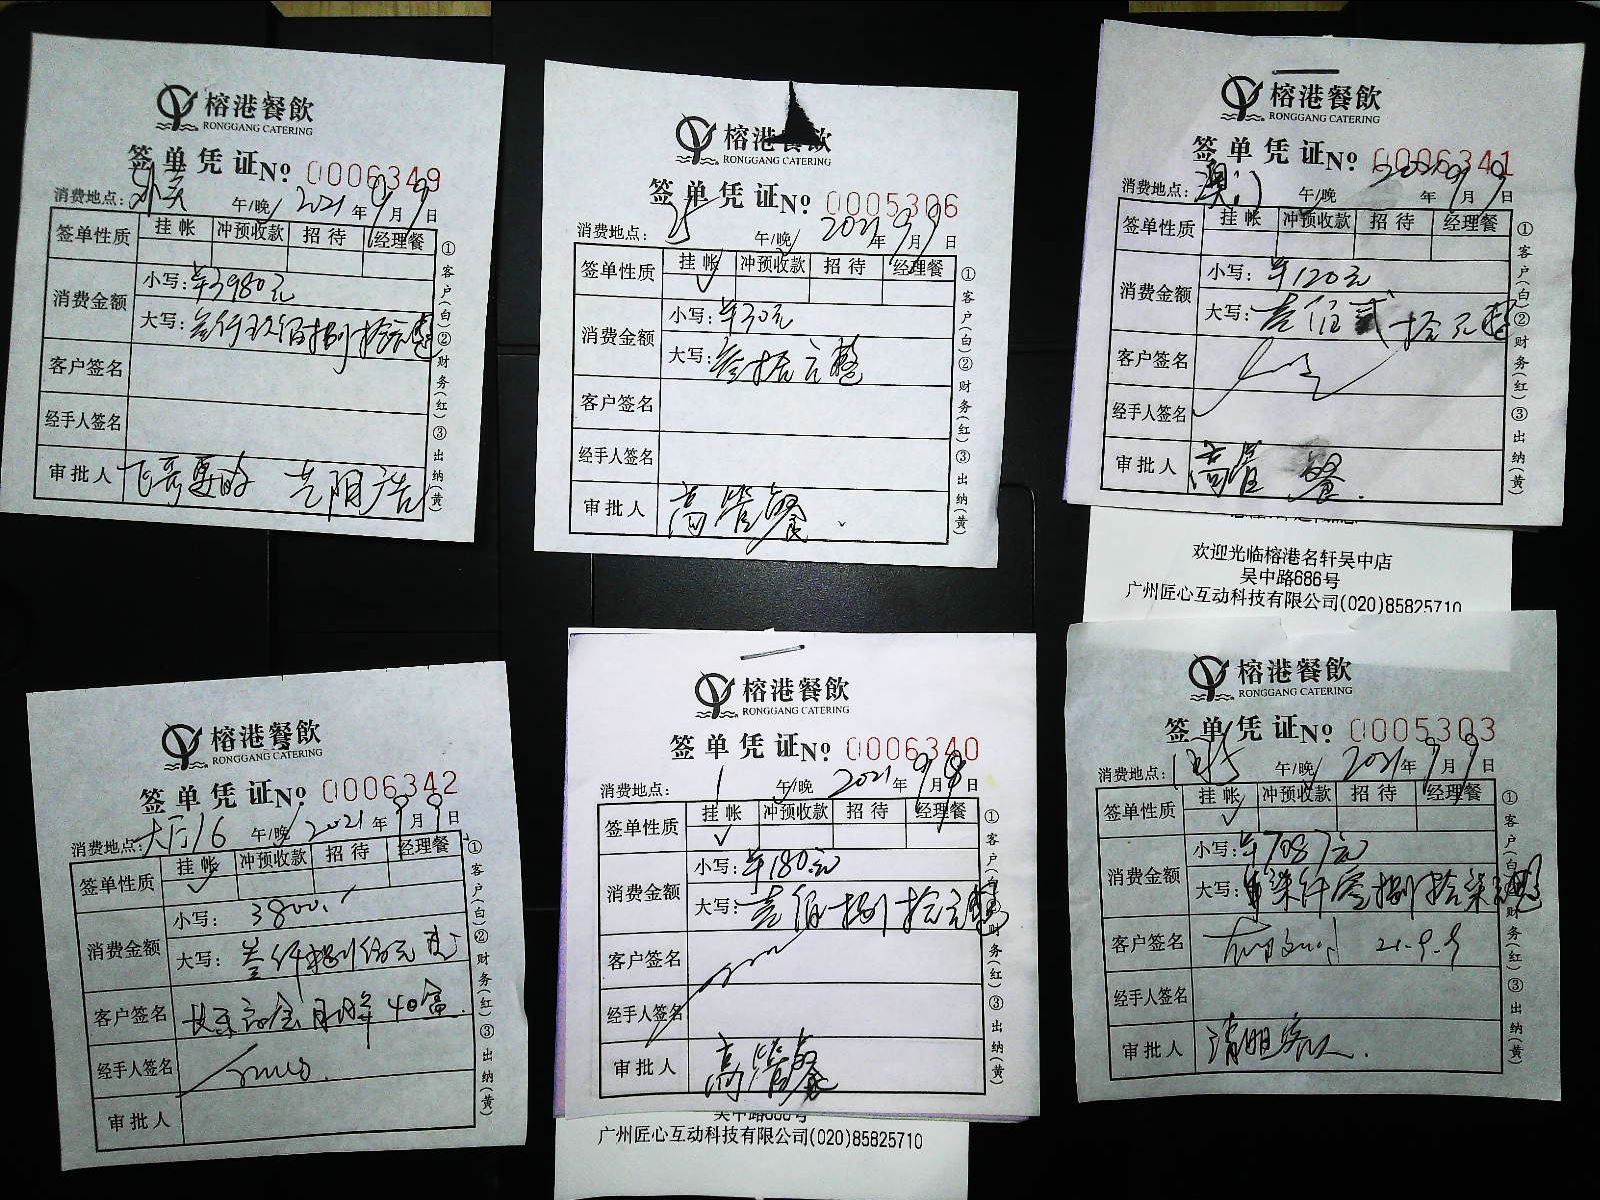 榕港餐飲
RONGGANG CATERING
签单凭证No. 0006349
消费地点：外卖 午/晚 2021年9月9日
签单性质 挂帐 冲预收款 招待 经理餐
消费金额 小写：¥3980元
大写：叁仟玖佰捌拾元整
客户签名
经手人签名
审批人
①客户(白)②财务(红)③出纳(黄)
榕港餐飲
RONGGANG CATERING
签单凭证No. 0005306
消费地点：25 午/晚 2021年9月9日
签单性质 挂帐 冲预收款 招待 经理餐
消费金额 小写：¥30元
大写：叁拾元整
客户签名
经手人签名
审批人 高管餐
①客户(白)②财务(红)③出纳(黄)
榕港餐飲
RONGGANG CATERING
签单凭证No. 0006341
消费地点：澳门 午/晚 2021年9月9日
签单性质 挂帐 冲预收款 招待 经理餐
消费金额 小写：¥120元
大写：壹佰贰拾元整
客户签名
经手人签名
审批人 高管餐.
①客户(白)②财务(红)③出纳(黄)
欢迎光临榕港名轩吴中店
吴中路686号
广州匠心互动科技有限公司(020)85825710
榕港餐飲
RONGGANG CATERING
签单凭证No. 0006342
消费地点：大厅16 午/晚 2021年9月9日
签单性质 挂帐 冲预收款 招待 经理餐
消费金额 小写：3800.
大写：叁仟捌佰元正
客户签名 40盒
经手人签名
审批人
①客户(白)②财务(红)③出纳(黄)
榕港餐飲
RONGGANG CATERING
签单凭证No. 0006340
消费地点：1 午/晚 2021年9月9日
签单性质 挂帐 冲预收款 招待 经理餐
消费金额 小写：¥180元
大写：壹佰捌拾元整
客户签名
经手人签名
审批人 高管餐
①客户(白)②财务(红)③出纳(黄)
吴中路686号
广州匠心互动科技有限公司(020)85825710
榕港餐飲
RONGGANG CATERING
签单凭证No. 0005303
消费地点： 午/晚 2021年9月9日
签单性质 挂帐 冲预收款 招待 经理餐
消费金额 小写：¥7087元
大写：柒仟零捌拾柒元整
客户签名 21.9.9
经手人签名
审批人 清明客人.
①客户(白)②财务(红)③出纳(黄)